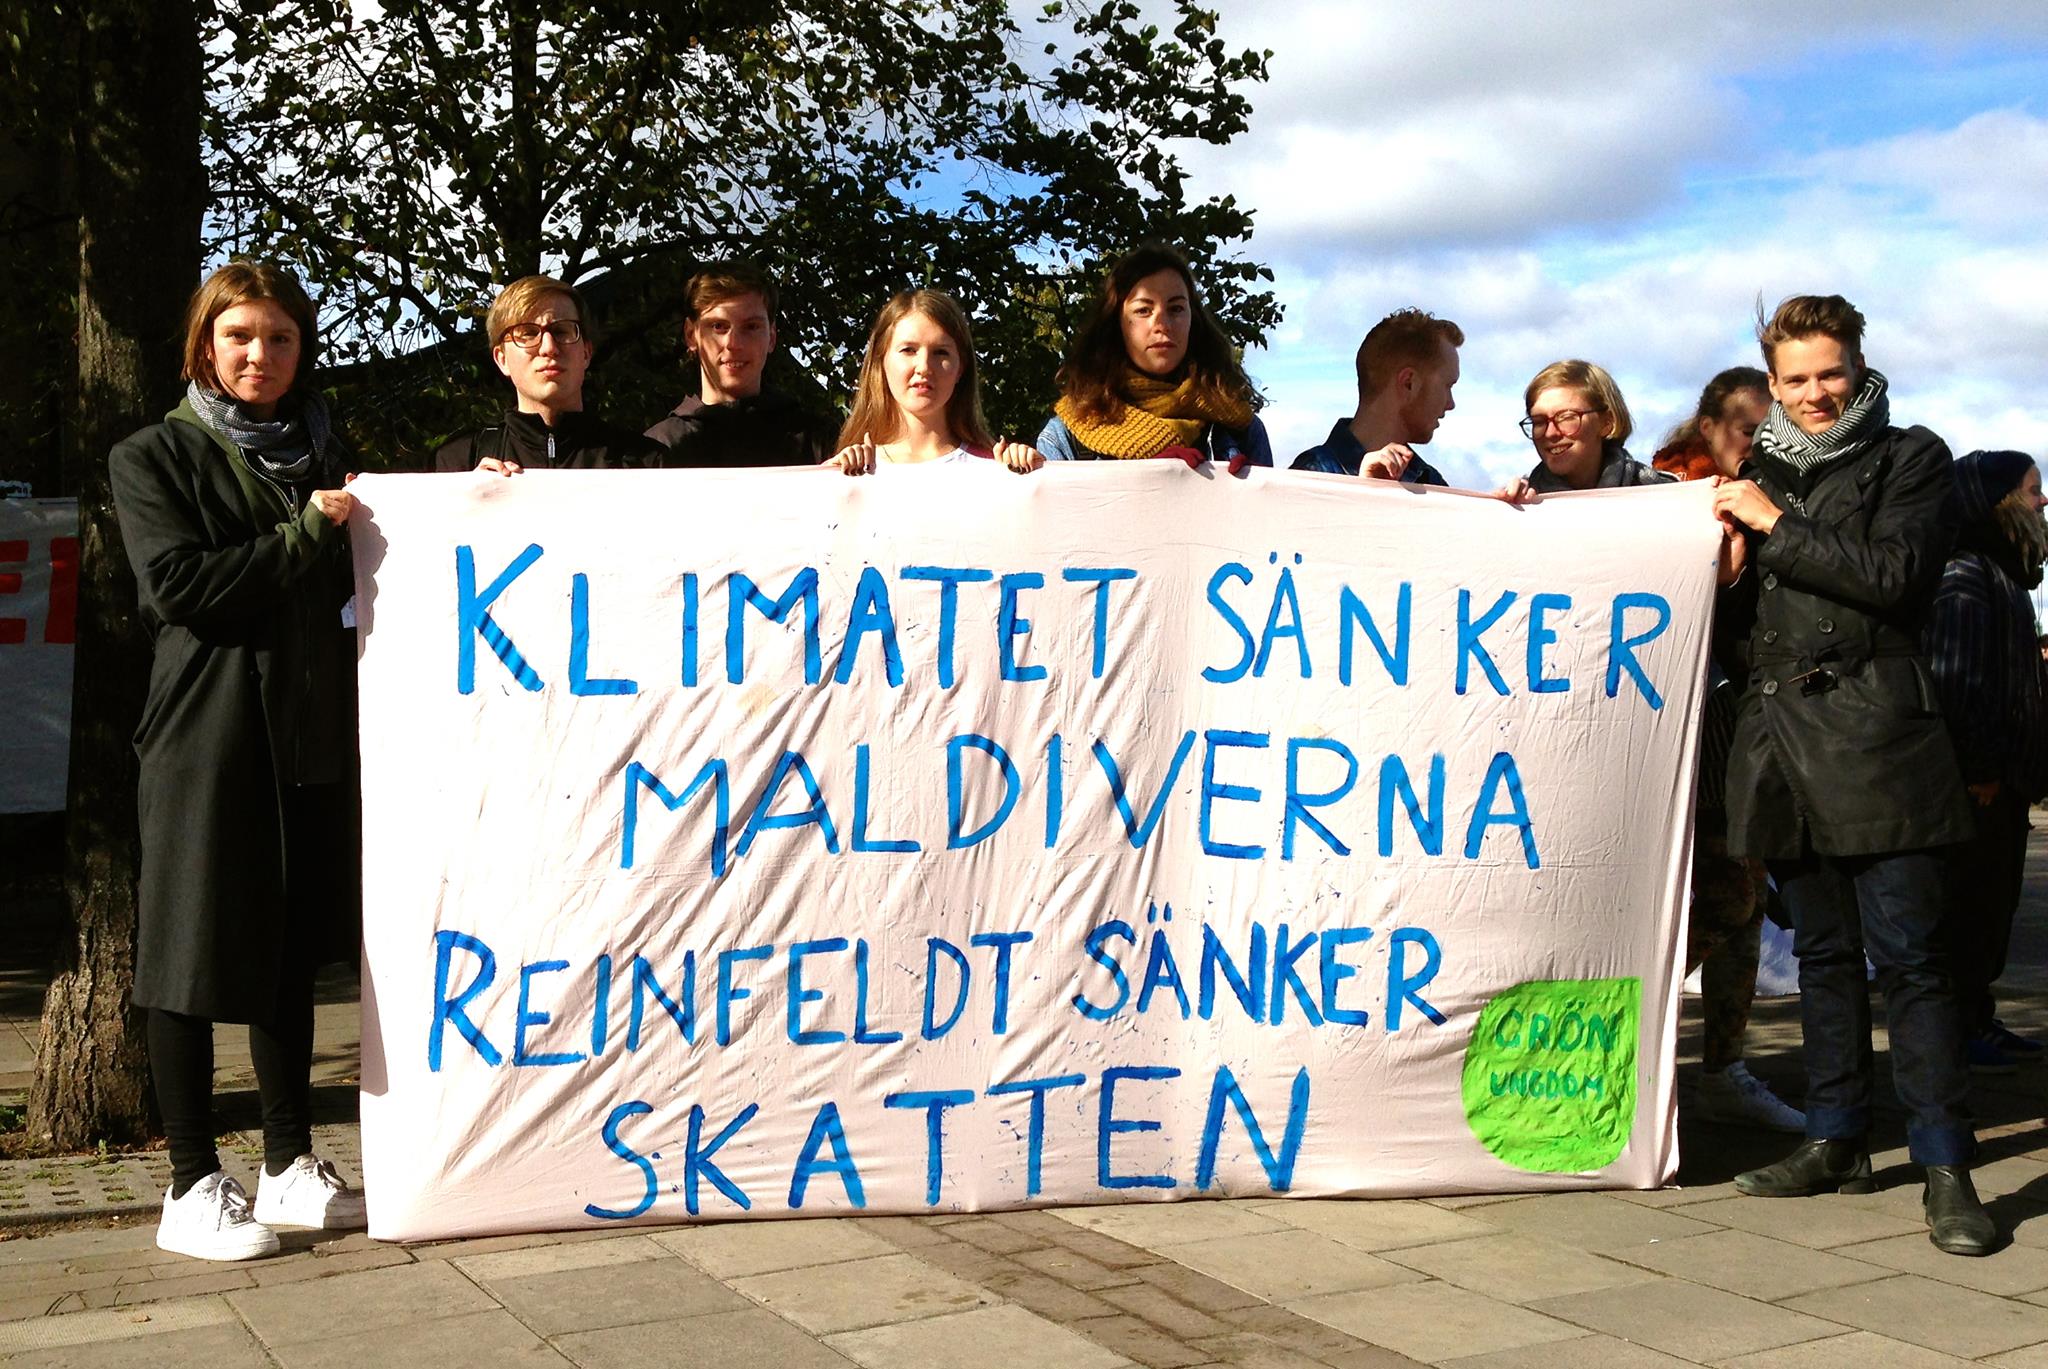 KLIMATET SÄNKER
MALDIVERNA
REINFELDT SÄNKER
SKATTEN
GRÖN
UNGDOM